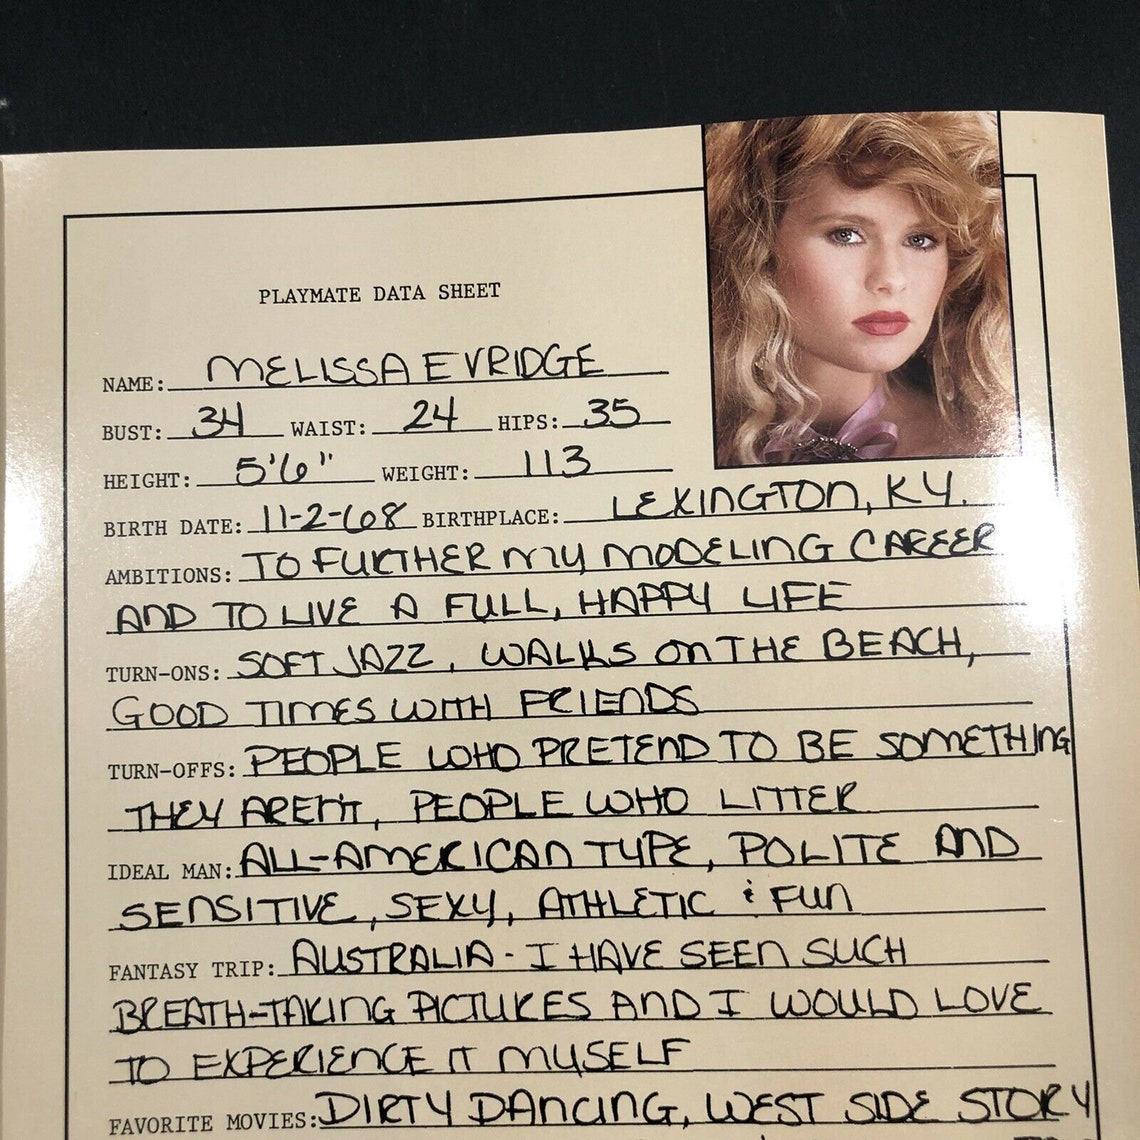 PLAYMATE DATA SHEET
NAME: MELISSA EVRIDGE
BUST: 34 WAIST: 24 HIPS: 35
HEIGHT: 5'6" WEIGHT: 113
BIRTH DATE: 11-2-68 BIRTHPLACE: LEXINGTON, KY.
AMBITIONS: TO FURTHER MY MODELING CAREER
AND TO LIVE A FULL, HAPPY LIFE
TURN-ONS: SOFT JAZZ, WALKS ON THE BEACH,
GOOD TIMES WITH FRIENDS
TURN-OFFS: PEOPLE WHO PRETEND TO BE SOMETHING
THEY AREN'T, PEOPLE WHO LITTER
IDEAL MAN: ALL-AMERICAN TYPE, POLITE AND
SENSITIVE, SEXY, ATHLETIC & FUN
FANTASY TRIP: AUSTRALIA - I HAVE SEEN SUCH
BREATH-TAKING PICTURES AND I WOULD LOVE
TO EXPERIENCE IT MYSELF
FAVORITE MOVIES: DIRTY DANCING, WEST SIDE STORY